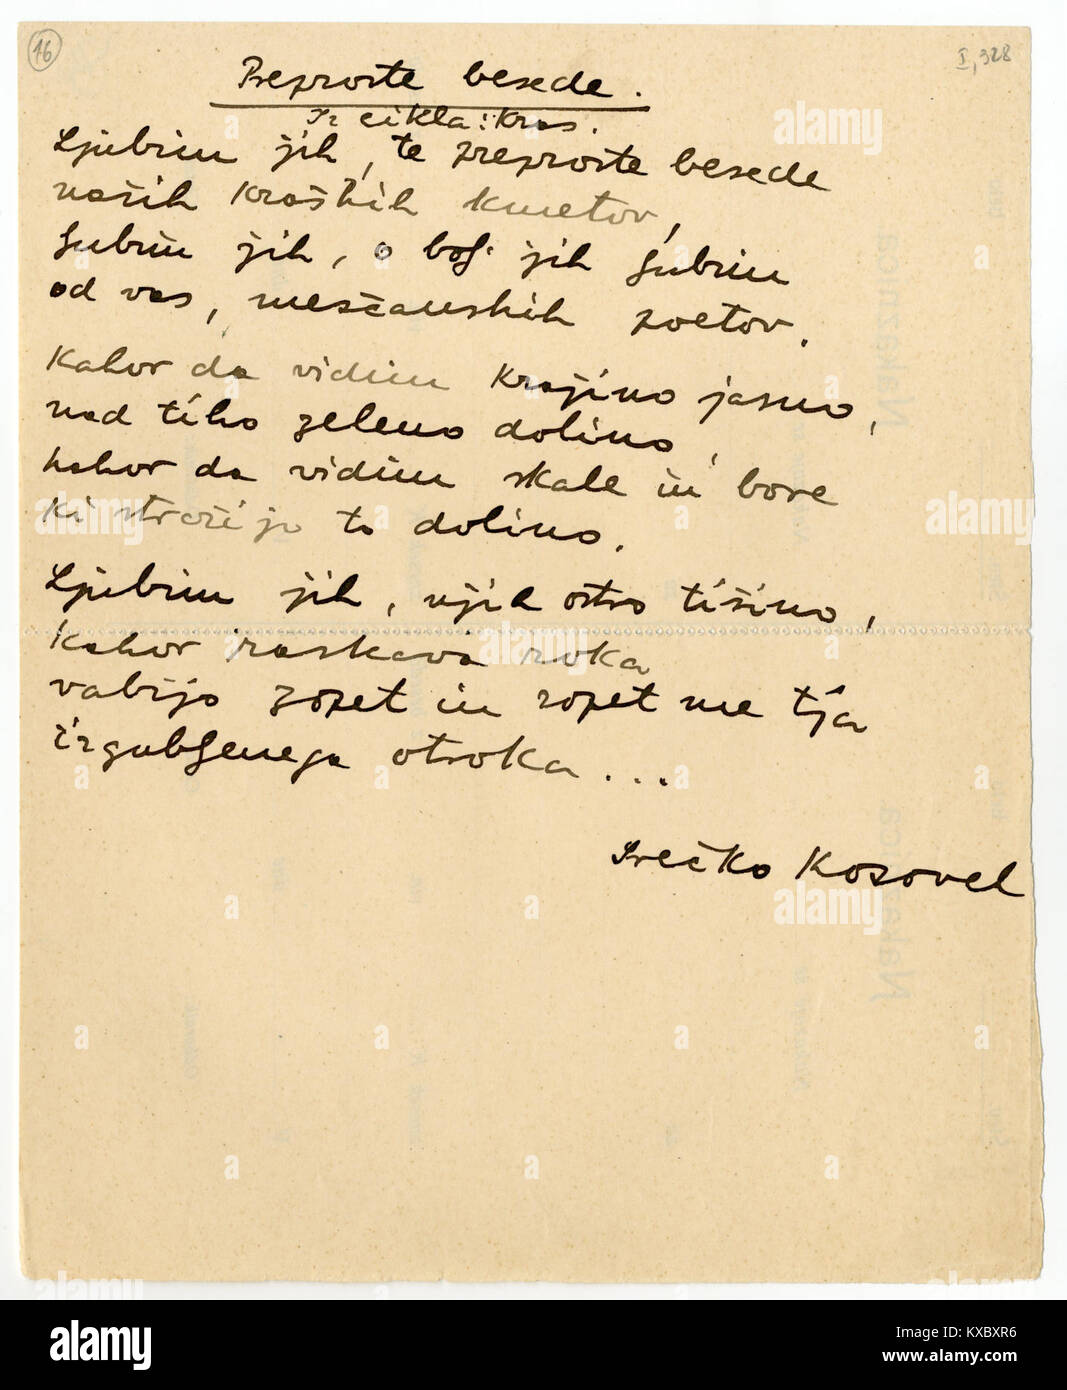 16
I, 328
Preproste besede.
Iz cikla: Kras.
Ljubim jih, te preproste besede
naših kraških kmetov,
ljubim jih, o bolj jih ljubim
od vas, meščanskih poetov.
Kakor da vidim krajino jasno,
nad tiho zeleno dolino,
kakor da vidim skale in bore
ki stražijo to dolino.
Ljubim jih, njih ostro tišino,
kakor raskava roka
vabijo zopet in zopet me tja
izgubljenega otroka...
Srečko Kosovel
Nakaznica
Nakaznica
alamy
Image ID: KXBXR6
www.alamy.com